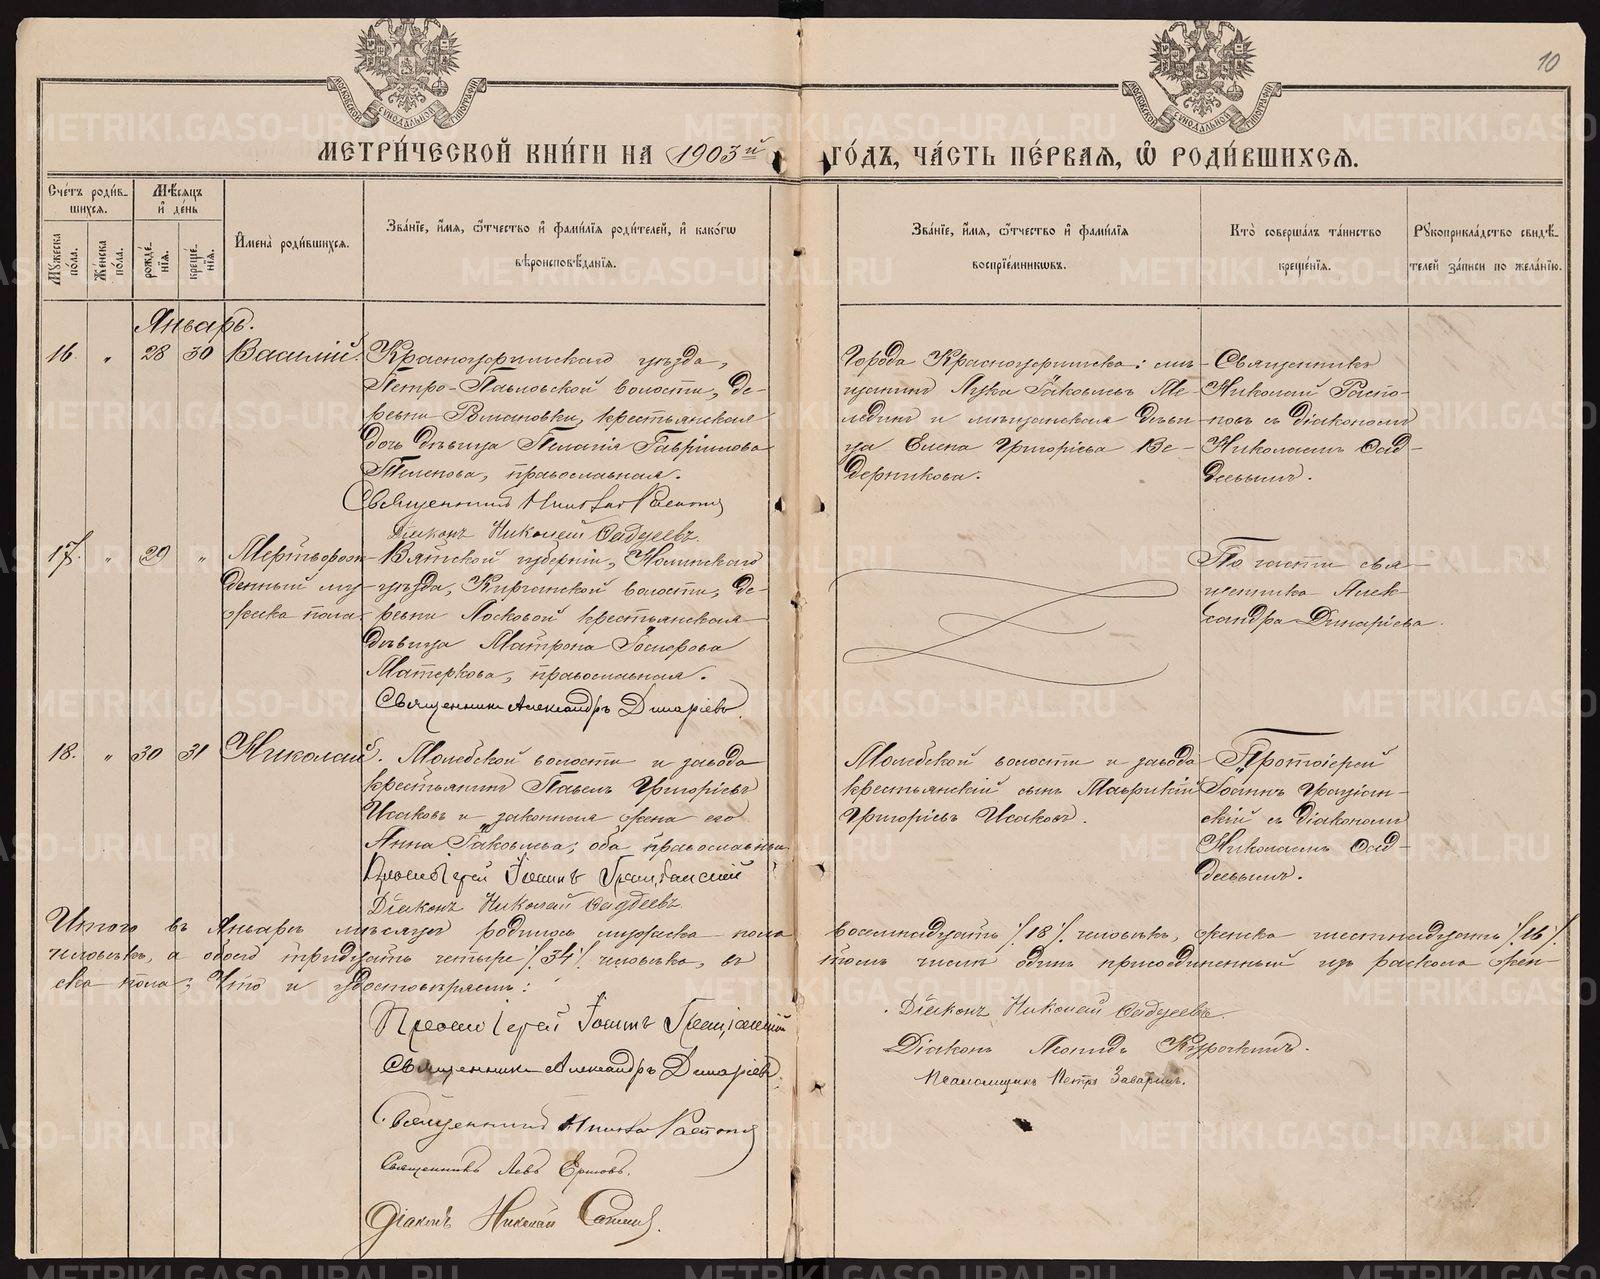 10
МОСКОВСКОЙ СУНОДАЛЬНОЙ ТИПОГРАФІИ
МОСКОВСКОЙ СУНОДАЛЬНОЙ ТИПОГРАФІИ
МЕТРИ́ЧЕСКОЙ КНИ́ГИ НА 1903й
ГО́ДЪ, ЧА́СТЬ ПЕ́РВАЯ, Ѡ҆ РОДИ́ВШИХСЯ.
Сче́тъ роди́в-
шихся.
Мѣ́сяцъ
и҆ де́нь
Му́жеска по́ла.
Же́нска по́ла.
рожде́-нїя.
креще́-нїя.
И҆мена̀ роди́вшихся.
Зва́нїе, и҆́мя, ѻ҆́тчество и҆ фами́лїя роди́телей, и҆ како́гѡ
вѣроисповѣ́данїя.
Зва́нїе, и҆́мя, ѻ҆́тчество и҆ фами́лїя
воспрїе́мникѡвъ.
Кто̀ соверша́лъ та́инство
креще́нїя.
Рꙋкоприкла́дство свидѣ́-
телей за́писи по жела́нїю.
Январь.
16. " 28 30 Василій.
Красноуфимскаго уѣзда,
Петро-Павловской волости, де-
ревни Романовки, крестьянская
дочь дѣвица Пелагія Гавріилова
православная.
Священникъ Николай Распоповъ
Діаконъ Николай Фаддеевъ.
Города Красноуфимска: мѣ-
щанинъ Лука Іаковлевъ Ме-
лединъ и мѣщанская дѣви-
ца Елена Григорьева Ве-
дерникова.
Священникъ
Николай Распо-
повъ съ діакономъ
Николаемъ Фад-
деевымъ.
17. " 29 " Мертворож-
денный му-
жеска пола.
Вятской губерніи, Нолинскаго
уѣзда, Кырчанской волости, де-
ревни Лосковой крестьянская
дѣвица Матрона Ѳеодорова
Матеркова, православная.
Священникъ Александръ Динаріевъ.
По части свя-
щенника Алек-
сандра Динаріева.
18. " 30 31 Николай.
Молебской волости и завода
крестьянинъ Павелъ Григорьевъ
Исаковъ и законная жена его
Анна Іаковлева; оба православные.
Протоіерей Іоаннъ Граціанскій
Діаконъ Николай Фаддеевъ.
Молебской волости и завода
крестьянскій сынъ Маврикій
Григорьевъ Исаковъ.
Протоіерей
Іоаннъ Граціан-
скій съ діакономъ
Николаемъ Фад-
деевымъ.
Итого въ Январѣ мѣсяцѣ родилось мужеска пола восемнадцать /18/ человѣкъ, женска шестнадцать /16/
человѣкъ, а обоего тридцать четыре /34/ человѣка, въ томъ числѣ одинъ присоединенный изъ раскола жен-
ска пола; Что и удостовѣряемъ:
Протоіерей Іоаннъ Граціанскій
Священникъ Александръ Динаріевъ.
Священникъ Николай Распоповъ
Священникъ Левъ Ершовъ.
Діаконъ Николай
Діаконъ Николай Фаддеевъ.
Діаконъ Леонидъ Курочкинъ.
Псаломщикъ Петръ Заваринъ.
METRIKI.GASO-URAL.RU